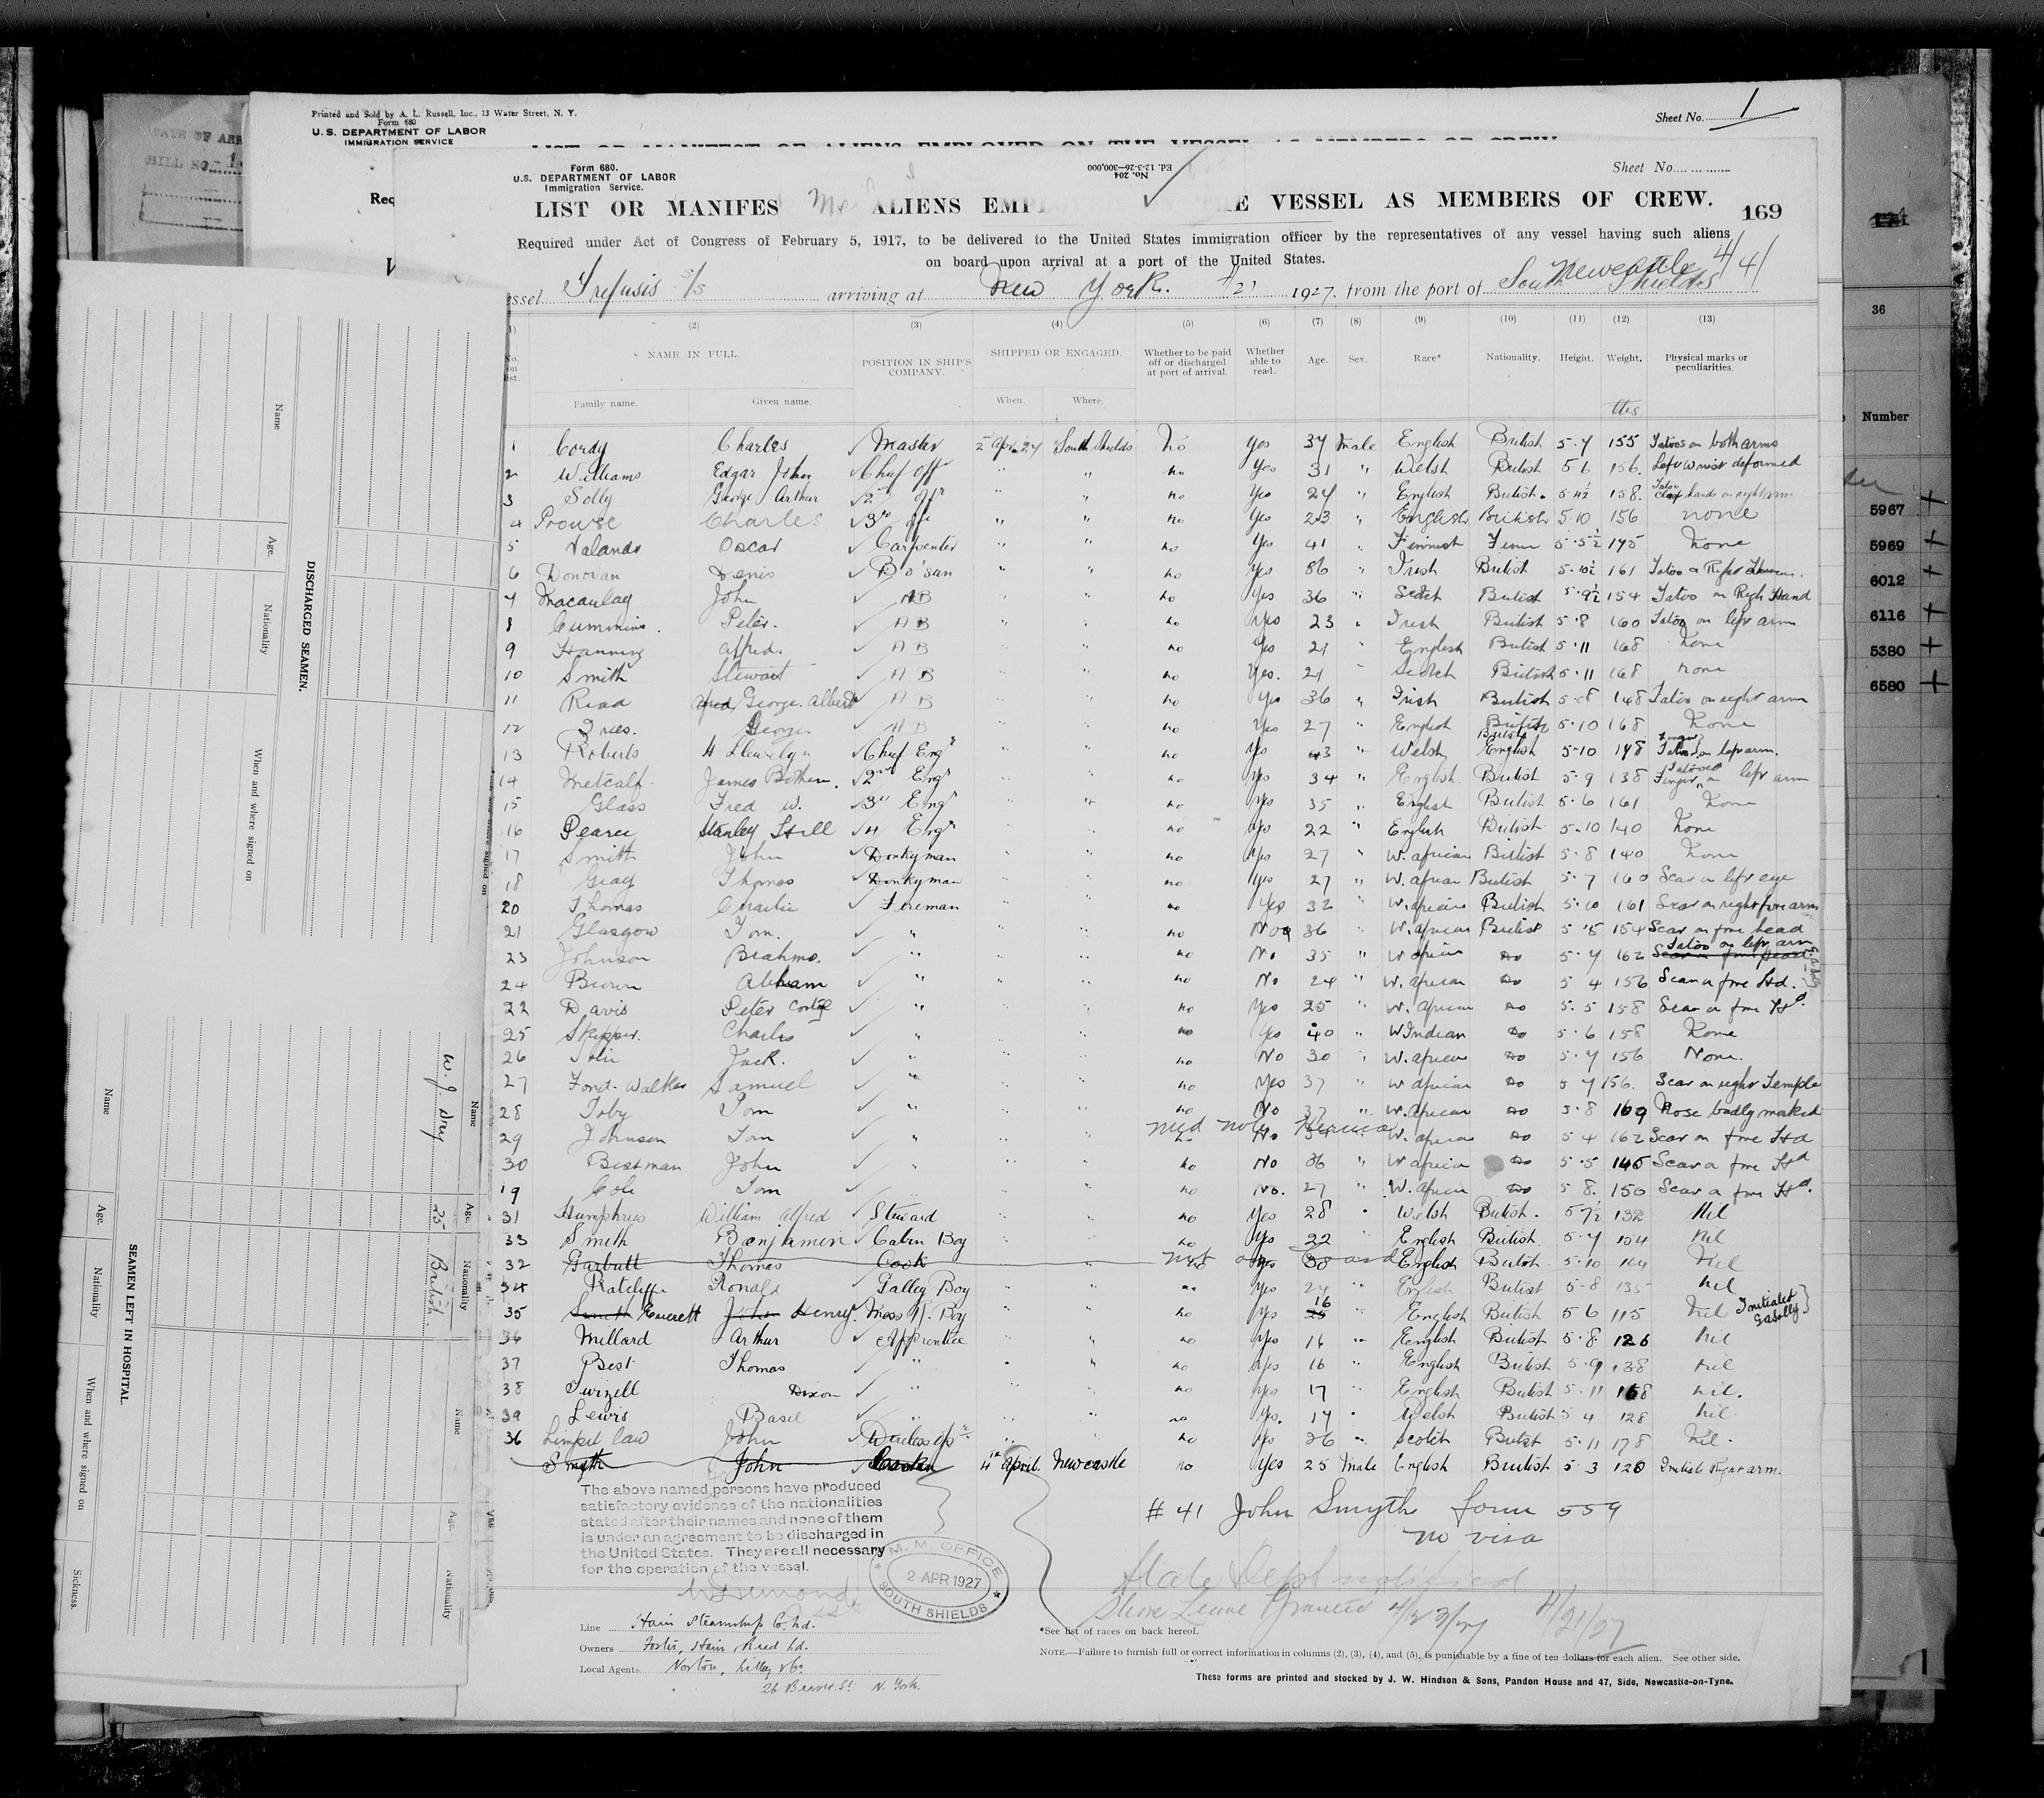 Printed and Sold by A. L. Russell, Inc., 13 Water Street, N. Y.
Form 680
U. S. DEPARTMENT OF LABOR
IMMIGRATION SERVICE
Sheet No. 1
Form 680.
U.S. DEPARTMENT OF LABOR
Immigration Service.
No. 204
Ed. 12-3-26—300,000
Sheet No.
LIST OR MANIFES ALIENS EMP E VESSEL AS MEMBERS OF CREW.
169
Required under Act of Congress of February 5, 1917, to be delivered to the United States immigration officer by the representatives of any vessel having such aliens
on board upon arrival at a port of the United States.
essel Trefusis s/s arriving at New York. 1927, from the port of South Shields Newcastle 4/4
(2) (3) (4) (5) (6) (7) (8) (9) (10) (11) (12) (13)
No. on list. NAME IN FULL. POSITION IN SHIP'S COMPANY. SHIPPED OR ENGAGED. Whether to be paid off or discharged at port of arrival. Whether able to read. Age. Sex. Race* Nationality. Height. Weight. Physical marks or peculiarities.
Family name. Given name. When. Where.
1 Cordy Charles Master 2 Apr. 27 South Shields No Yes 37 Male English British 5.7 155 Tatoos on both arms
2 Williams Edgar John Chief Off " " no Yes 31 " Welsh British 5 6 156. Left wrist deformed
3 Solly George Arthur 2nd Off " " no Yes 24 " English British. 5 4½ 158. Tatoo clasp hands on right arm
4 Prowse Charles 3rd Off " " no Yes 23 " English British 5.10 156 none
5 Oscar Carpenter " " no Yes 41 " Finnish Finn 5.5½ 175 None
6 Donovan Denis Bo'sun " " no Yes 36 " Irish British 5.10½ 161
7 Macaulay John AB " " no Yes 36 " Scotch British 5.9½ 154 Tatoo on Righ Hand
8 Cummins. Peter. AB " " no Yes 23 " Irish British 5.8 160 Tatoo on left arm
9 Hanning Alfred. AB " " no Yes 21 English British 5.11 168 None
10 Smith Stewart AB " " no Yes. 21 " Scotch British 5.11 168 none
11 Read George Albert AB " " no Yes 36 " Irish British 5.8 148 Tatoo on right arm
12 George AB " " no Yes 27 " English British 5.10 168 None
13 Roberts H Llewelyn Chief Engr " " no Yes 43 " Welsh British English 5.10 198 on left arm.
14 Metcalf. James 2nd Engr " " no Yes 34 " English. British 5.9 138 Finger on left arm
15 Glass Fred W. 3rd Engr " " no Yes 35 " English British 5.6 161 None
16 Pearce Stanley Still 4 Engr " " no Yes 22 " English British 5.10 140 None
17 Smith John Donkyman " " no Yes 27 " W. African British 5.8 140 None
18 Gray Thomas Donkyman " " no Yes 27 " W. African British 5.7 160 Scar on left eye
20 Thomas Charlie Fireman " " no Yes 32 " W. African British 5.10 161 Scar on right fore arm
21 Glasgow Tom. " " " no No 36 " W. African British 5.5 154 Scar on fore head
23 Johnson Brahmo. " " " no No 35 " W African Do 5.7 162 Tatoo on left arm
24 Brown Abraham " " " no No 24 " W. African Do 5 4 156 Scar on fore Hd.
22 Davis Peter " " " no Yes 25 " W. African Do 5.5 158 Scar on fore Hd.
25 Skipper. Charles " " " no Yes 40 " W Indian Do 5.6 158 None
26 Jack. " " " no No 30 " W. African Do 5.7 156 None.
27 Ford-Walker Samuel " " " no Yes 37 " W African Do 5 7 156. Scar on right Temple
28 Toby Tom " " " no No 37 " W. African Do 5.8 169 Nose badly marked
29 Johnson Tom " " " no No " W. African Do 5 4 162 Scar on fore Hd
30 Bestman John " " " no No 36 " W African Do 5.5 145 Scar on fore Hd
19 Cole Tom " " " no No. 27 " W. African Do 5 8. 150 Scar on fore Hd.
31 Humphries William Alfred Steward " " no Yes 28 " Welsh British. 5 7½ 132 Nil
33 Smith Benjamin Cabin Boy " " no Yes 22 " English British. 5.7 154 Nil
32 Garbutt Thomas Cook not on board English British 5.10 164 Nil
34 Ratcliffe Ronald Galley Boy " " no Yes 24 " English British 5.8 135 Nil
35 Smith Everett John Henry. Mess R. Boy " " no Yes 16 " English British 5 6 115 Nil Initialed GASolly
36 Millard Arthur Apprentice " " no Yes 16 " English British 5.8 126 Nil
37 Best Thomas " " " no Yes 16 " English British 5.9 138 Nil
38 Twizell Dixon " " no Yes 17 " English British 5.11 168 Nil.
39 Lewis Basil " " " no Yes. 17 " Welsh British 5 4 128 Nil
36 John Wireless Opr " " no Yes 26 " Scotch British 5.11 178 Nil.
Smyth John 4th April. Newcastle no Yes 25 Male English British 5.3 120 Initials Right arm.
# 41 John Smyth form 559
no visa
State Dept notified
Shore Leave Granted 4/23/27
4/21/27
The above named persons have produced
satisfactory evidence of the nationalities
stated after their names and none of them
is under an agreement to be discharged in
the United States. They are all necessary
for the operation of the vessel.
M. M. OFFICE
2 APR 1927
SOUTH SHIELDS
Line Hain Steamship Co. Ld.
Owners Foster, Hain & Read Ld.
Local Agents Norton, Lilley & Co
26 Beaver St. N. York.
*See list of races on back hereof.
NOTE.—Failure to furnish full or correct information in columns (2), (3), (4), and (5), is punishable by a fine of ten dollars for each alien. See other side.
These forms are printed and stocked by J. W. Hindson & Sons, Pandon House and 47, Side, Newcastle-on-Tyne.
DISCHARGED SEAMEN.
Name Age. Nationality When and where signed on
W. J. Dry 25 British.
SEAMEN LEFT IN HOSPITAL.
Name Age. Nationality When and where signed on Sickness.
36
Number
5967 +
5969 +
6012 +
6116 +
5380 +
6580 +